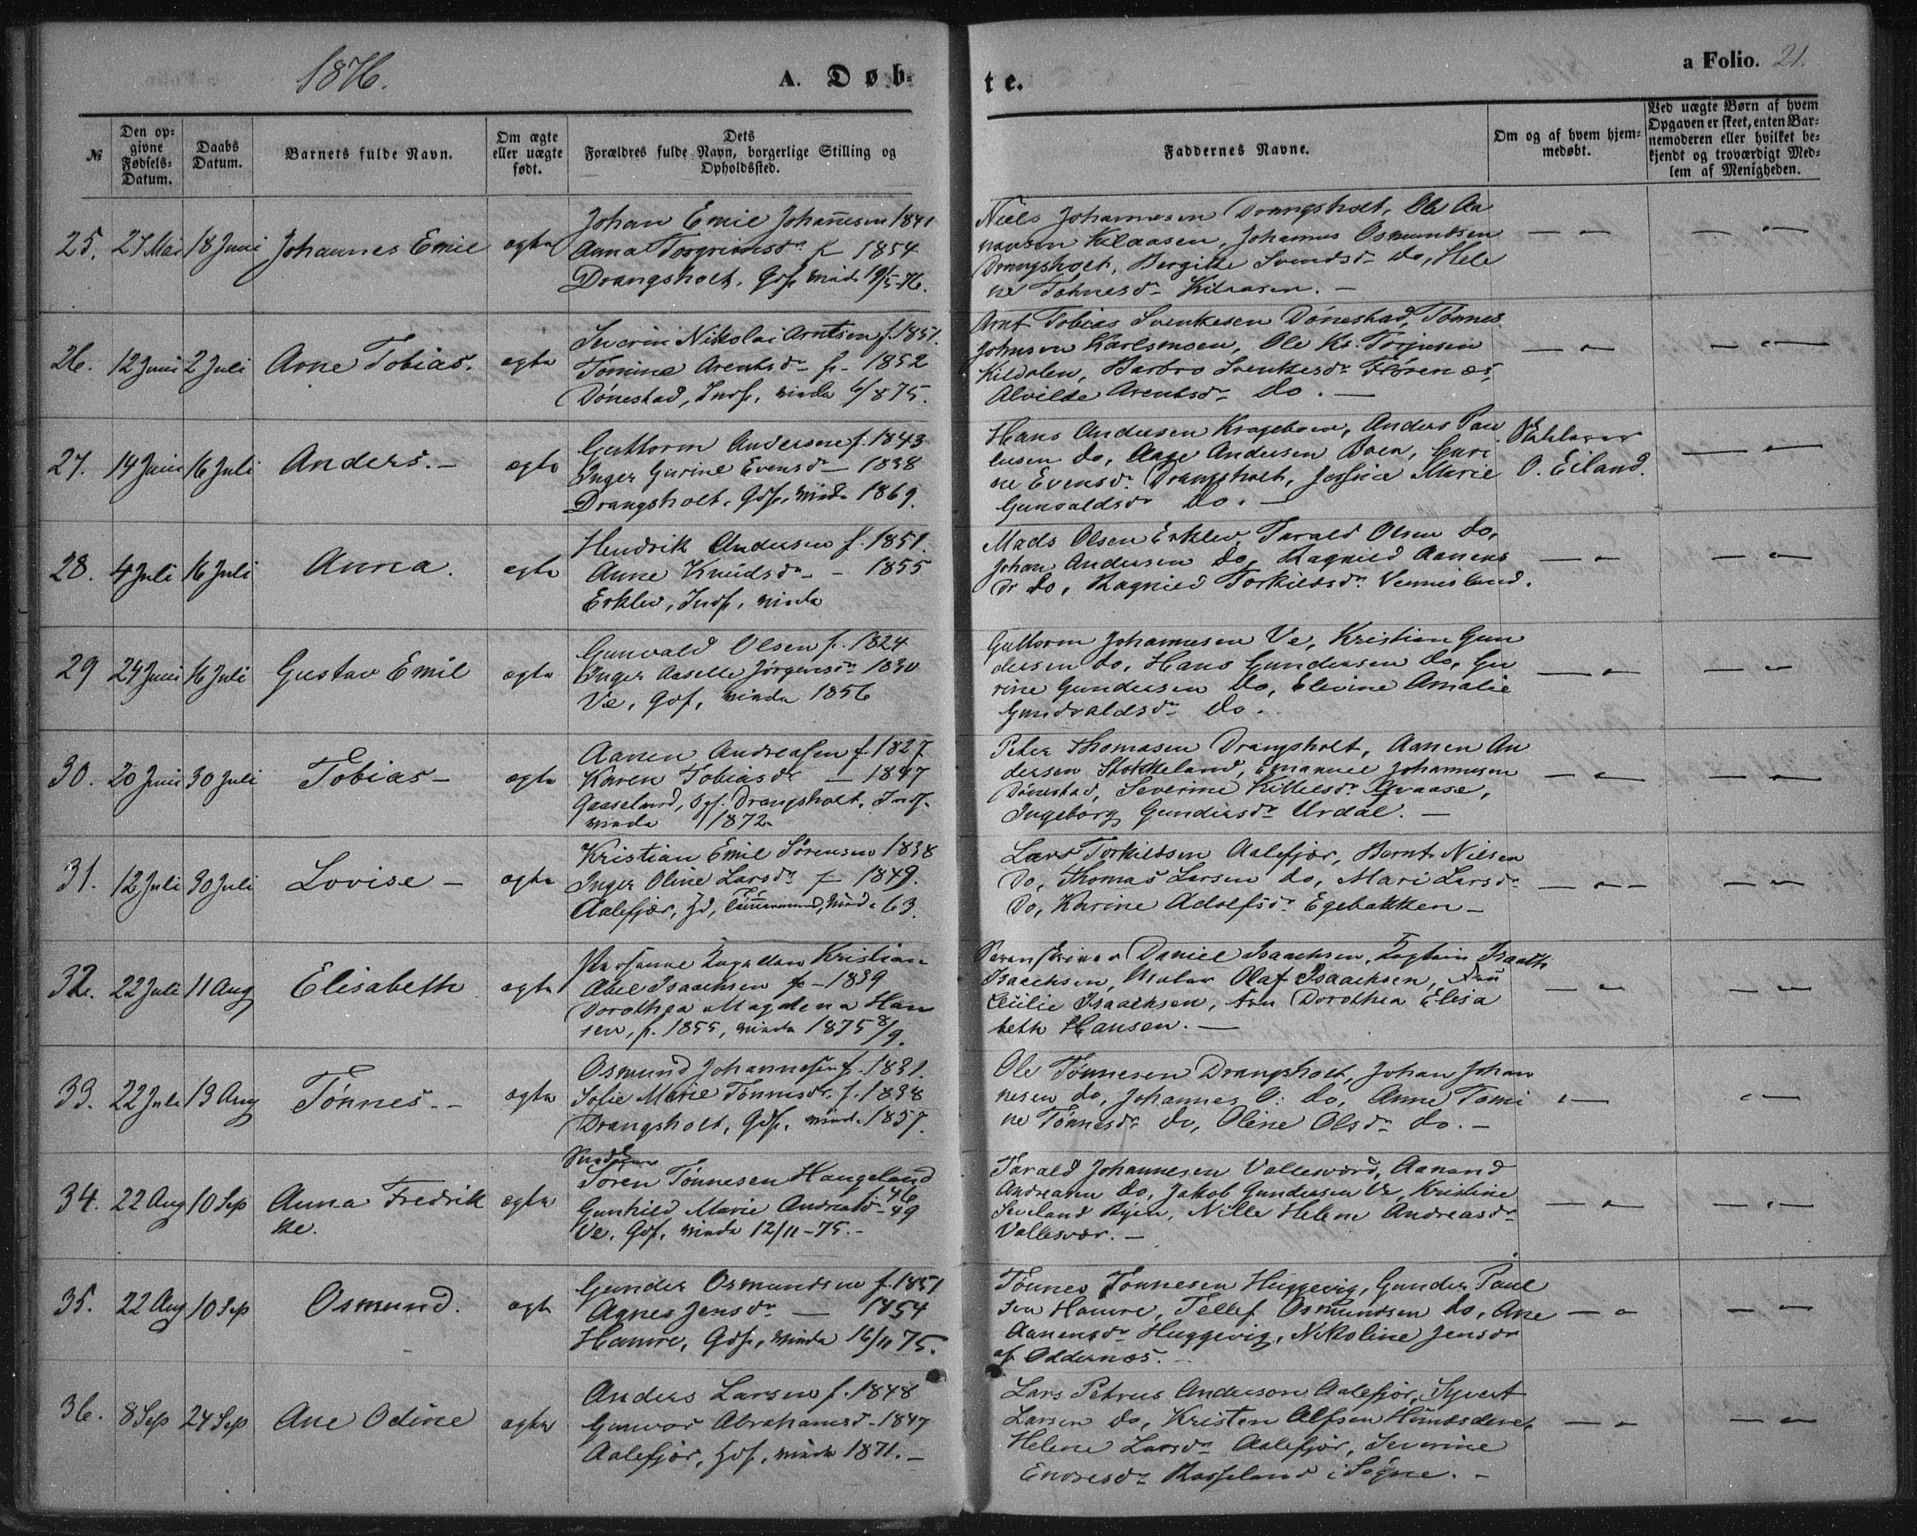 1876.
A. Døb-
te.
a Folio. 21.
№
Den op-
givne
Fødsels-
Datum.
Daabs
Datum.
Barnets fulde Navn.
Om ægte
eller uægte
født.
Dets
Forældres fulde Navn, borgerlige Stilling og
Opholdssted.
Faddernes Navne.
Om og af hvem hjem-
medøbt.
Ved uægte Børn af hvem
Opgaven er skeet, enten Bar-
nemoderen eller hvilket be-
kjendt og troværdigt Med-
lem af Menigheden.
25. 27 Mai 18 Juni Johannes Emil ægte
Johan Emil Johannesen 1841
Anna Torgrimsdr f 1854
Drangsholt, Gdf, viede 19/5-76.
Niels Johannesen Drangsholt, Ole Aa
nonsen Kilaasen, Johannes Osmundsen
Drangsholt, Bergitte Svendsdr do, Hele
ne Tønnesdr Kilaasen. —
26. 12 Juni 2 Juli Arne Tobias. ægte
Severin Nikolai Arntsen f. 1851.
Tomine Arentsdr f - 1852
Dønestad, Indf, viede 6/875.
Arnt Tobias Svenkesen Dønestad, Tønnes
Johnsen Karlsmoen, Ole Kr. Torjusen
Kildalen, Barbro Svenkesdr Florenæs,
Alvilde Arentsdr do. —
27. 14 Juni 16 Juli Anders. — ægte
Guttorm Andersen f. 1843
Inger Gurine Evensdr — 1838
Drangsholt, Gdf, viede 1869.
Hans Andersen Krageboen, Anders Pau
lusen do, Aage Andersen Boen, Guri
ne Evensdr Drangsholt, Jessine Marie
Gunvaldsdr do. —
O. Eiland.
28. 4 Juli 16 Juli Anna. ægte
Hendrik Andersen f. 1851.
Anne Knudsdr — - 1855
Erklev, Indf, viede
Mads Olsen Erklev, Tarald Olsen do,
Johan Andersen do, Ragnild Aanens
dr do, Ragnild Torkildsdr Vennesland.
29 24 Juni 16 Juli Gustav Emil ægte
Gunvald Olsen f. 1824
Inger Aaselle Jørgensdr 1830
Ve, Gdf, viede 1856
Guttorm Johannesen Ve, Kristian Gun
dersen do, Hans Gundersen do, Gu
rine Gundersen do, Elevine Amalie
Gundvaldsdr do.
30. 20 Juni 30 Juli Tobias — ægte
Aanen Andreasen f. 1827
Karen Tobiasdr — 1847
Gaaseland, Drangsholt, Indf.
viede 1872
Peter Thomasen Drangsholt, Aanen An
dersen Stokkeland, Emanuel Johannesen
Dønestad, Severine Kittelsdr Kvaase,
Ingeborg Gundersdr Urdal. —
31. 12 Juli 30 Juli Lovise — ægte
Kristian Emil Sørensen 1838
Inger Oline Larsdr f 1849.
Aalefjær, Hd, Tømmermand, viede 63.
Lars Torkildsen Aalefjær, Bernt Nilsen
do, Thomas Larsen do, Mari Larsdr
do, Karine Adolfsdr Egebakken —
32. 22 Juli 11 Aug Elisabeth ægte
Personel Kapellan Kristian
Abel Isaachsen f - 1839
Dorothea Magdena Han
sen, f. 1855, viede 1875 8/9.
Sorenskriver Daniel Isaachsen, Kaptein Isaach
Isaachsen, Maler Olaf Isaachsen, Fru
Cecilie Isaachsen, Fru Dorothea Elisa
beth Hansen. —
33. 22 Juli 13 Aug Tønnes. — ægte
Osmund Johannesen f. 1831.
Sofie Marie Tønnesdr f. 1838
Drangsholt, Gdf, viede 1857.
Ole Tønnesen Drangsholt, Johan Johan
nesen do, Johannes O. do, Anne Tomi
ne Tønnesdr do, Oline Olsdr do. —
34. 22 Aug 10 Sep Anna Fredrik
ke. ægte
Søren Tønnesen Haugeland
Gunhild Marie Andreasdr - 49
46
Ve, Gdf, viede 12/11-75. —
Tarald Johannesen Vallesværd, Aanand
Andreasen do, Jakob Gundersen Ve, Kristine
Seveland Ryen, Nille Helene Andreasdr
Vallesvær. —
35. 22 Aug 10 Sep Osmund. ægte
Gunder Osmundsen f. 1851
Agnes Jensdr — 1854
Hamre, Gdf, viede 16/11 75.
Tønnes Tønnesen Huggevig, Gunder Paul
sen Hamre, Tellef Osmundsen do, Ane
Aanensdr Huggevig, Nikoline Jensdr
af Oddernæs. —
36. 8 Sep 24 Sep Ane Odine ægte
Anders Larsen f. 1848
Gunvor Abrahamsdr - 1847
Aalefjær, Hdf, viede 1871. —
Lars Petrus Anderson Aalefjær, Syvert
Larsen do, Kristen Alfsen
Helene Larsdr Aalefjær, Severine
Endresdr Rosseland i Søgne. —